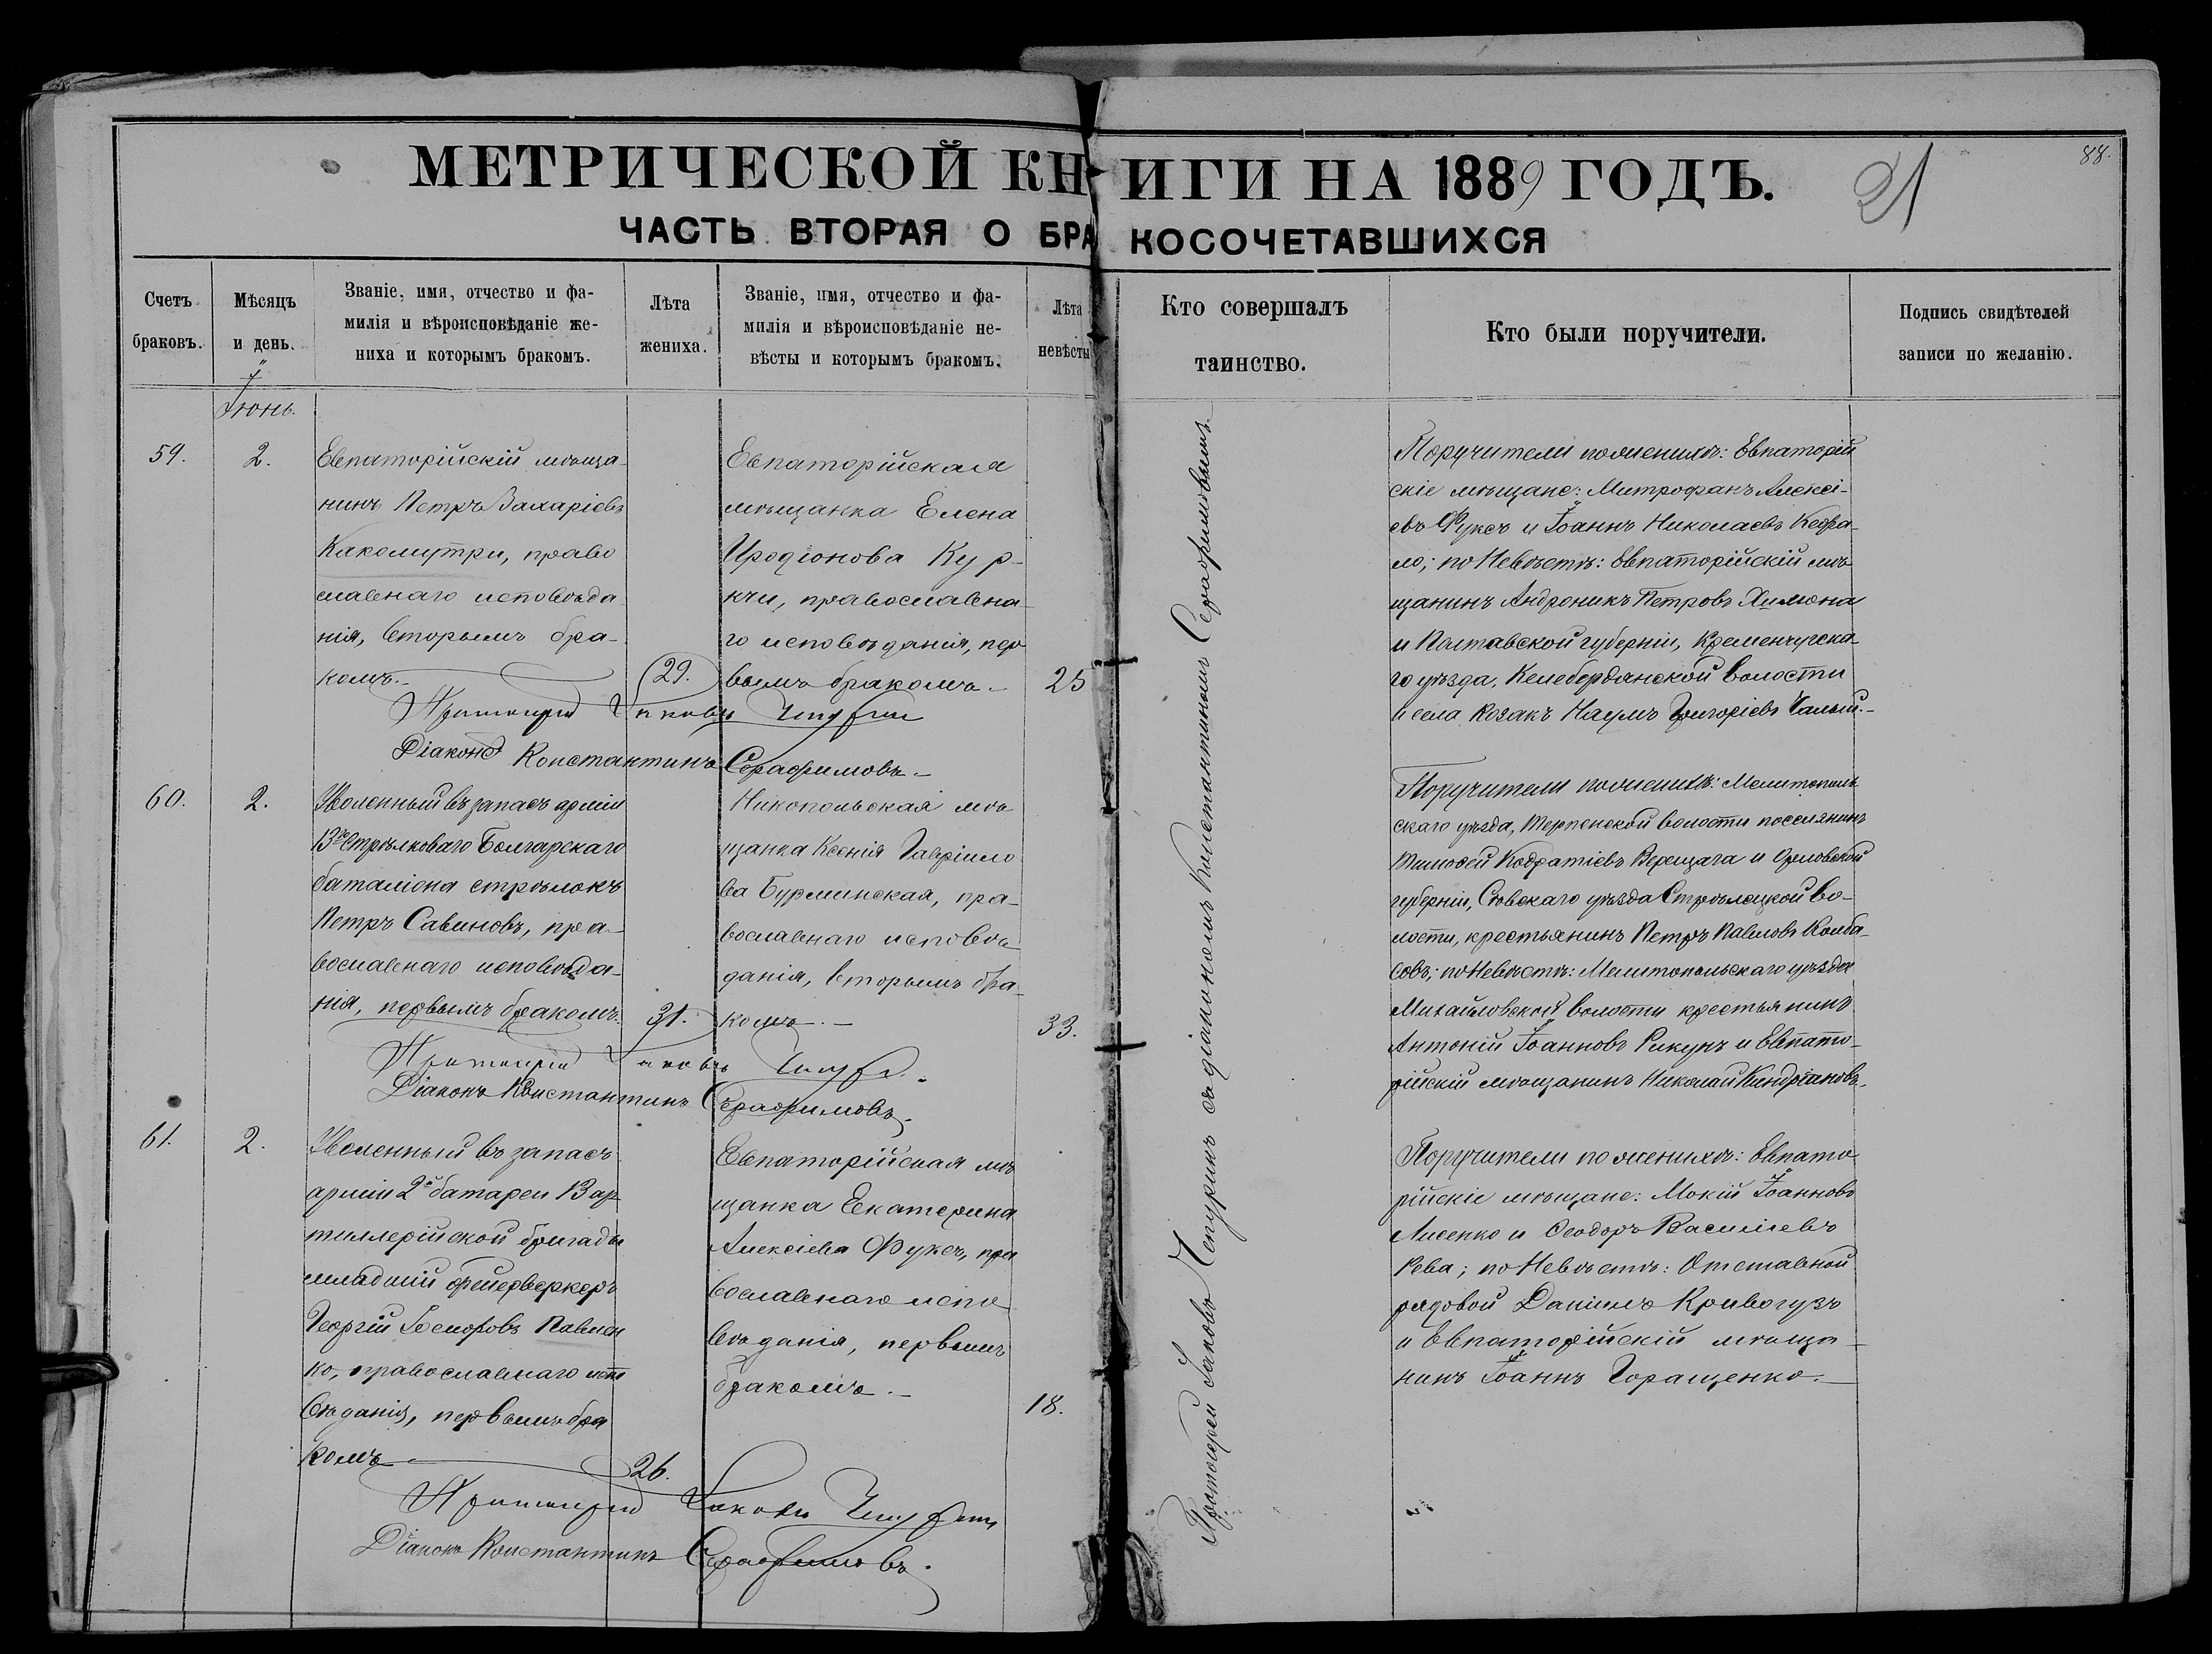 88.
21
МЕТРИЧЕСКОЙ КНИГИ НА 1889 ГОДЪ.
ЧАСТЬ ВТОРАЯ О БРАКОСОЧЕТАВШИХСЯ
Счетъ браковъ.
Мѣсяцъ и день.
Званіе, имя, отчество и фа-
милія и вѣроисповѣданіе же-
ниха и которымъ бракомъ.
Лѣта жениха.
Званіе, имя, отчество и фа-
милія и вѣроисповѣданіе не-
вѣсты и которымъ бракомъ.
Лѣта невѣсты
Кто совершалъ
таинство.
Кто были поручители.
Подпись свидѣтелей
записи по желанію.
Іюнь.
59.
2.
Евпаторійскій мѣща-
нинъ Петръ Захаріевъ
Какомитри, право
славнаго исповѣда
нія, вторымъ бра-
комъ.-
29.
Евпаторійская
мѣщанка Елена
Иродіонова Кур-
кчи, православна
го исповѣданія, пер
вымъ бракомъ.-
25
Протоіерей Іаковъ Чепуринъ
Діаконъ Константинъ Серафимовъ.-
Поручители по женихѣ: Евпаторій
скіе мѣщане: Митрофанъ Алексі-
евъ Фуксъ и Іоаннъ Николаевъ Кефа-
ло; по Невѣстѣ: Евпаторійскій мѣ
щанинъ Андроникъ Петровъ Химона
и Полтавской губерніи, Кременчугска-
го уѣзда, Келебердянской волости
и села козакъ Наумъ Григоріевъ Галый.-
60.
2.
Уволенный въ запасъ арміи
13го Стрѣлковаго Болгарскаго
баталіона стрѣлокъ
Петръ Савиновъ, пра-
вославнаго исповѣда-
нія, первымъ бракомъ.
31.
Никопольская мѣ
щанка Ксенія Гавріило
ва Бурминская, пра-
вославнаго исповѣ
данія, вторымъ бра-
комъ.-
33.
Протоіерей Іаковъ Чепуринъ
Діаконъ Константинъ Серафимовъ.
Поручители по женихѣ: Мелитополь
скаго уѣзда, Терпенской волости поселянинъ
Тимофей Кодратіевъ Верещага и Орловской
губерніи, Сѣвскаго уѣзда Стрѣлецкой во-
лости, крестьянинъ Петръ Павловъ Колба-
совъ; по Невѣстѣ: Мелитопольскаго уѣзда
Михайловской волости крестьянинъ
Антоній Іоанновъ Рикунъ и Евпато-
рійскій мѣщанинъ Николай Киндріановъ.
61.
2.
Уволенный въ запасъ
арміи 2й батареи 13 ар
тиллерійской бригады
младшій фейерверкеръ
Георгій Павлен
ко, православнаго испо
вѣданія, первымъ бра
комъ.-
26.
Евпаторійская мѣ
щанка Екатерина
Алексіева Фуксъ, пра
вославнаго испо
вѣданія, первымъ
бракомъ.-
18.
Протоіерей Іаковъ Чепуринъ
Діаконъ Константинъ Серафимовъ.
Поручители по женихѣ: Евпато
рійскіе мѣщане: Мокій Іоанновъ
Лисенко и Ѳеодоръ Василіевъ
Рева; по Невѣстѣ: Отставной
рядовой Даніилъ Кривогузъ
и Евпаторійскій мѣща-
нинъ Іоаннъ Горащенко.-
Протоіерей Іаковъ Чепуринъ съ діакономъ Константиномъ Серафимовымъ.